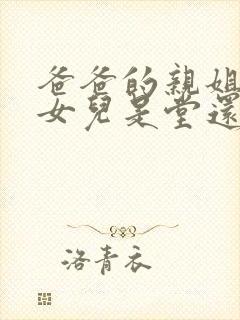 爸爸的親姐
女兒是堂還
洛青衣